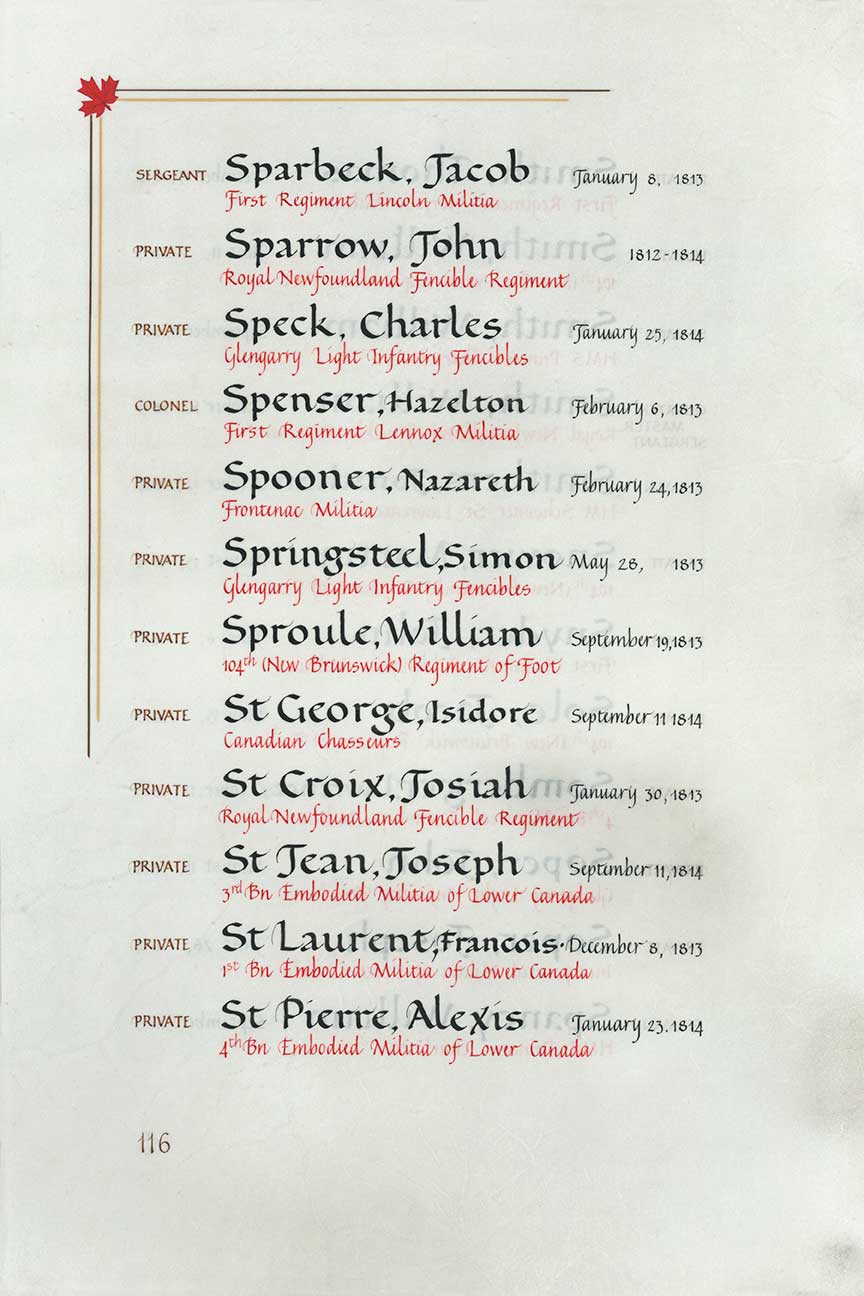 SERGEANT Sparbeck, Jacob January 8, 1813
First Regiment Lincoln Militia
PRIVATE Sparrow, John 1812-1814
Royal Newfoundland Fencible Regiment
PRIVATE Speck, Charles January 25, 1814
Glengarry Light Infantry Fencibles
COLONEL Spenser, Hazelton February 6, 1813
First Regiment Lennox Militia
PRIVATE Spooner, Nazareth February 24, 1813
Frontenac Militia
PRIVATE Springsteel, Simon May 28, 1813
Glengarry Light Infantry Fencibles
PRIVATE Sproule, William September 19, 1813
104th (New Brunswick) Regiment of Foot
PRIVATE St George, Isidore September 11 1814
Canadian Chasseurs
PRIVATE St Croix, Josiah January 30, 1813
Royal Newfoundland Fencible Regiment
PRIVATE St Jean, Joseph September 11, 1814
3rd Bn Embodied Militia of Lower Canada
PRIVATE St Laurent, Francois · December 8, 1813
1st Bn Embodied Militia of Lower Canada
PRIVATE St Pierre, Alexis January 23. 1814
4th Bn Embodied Militia of Lower Canada
116